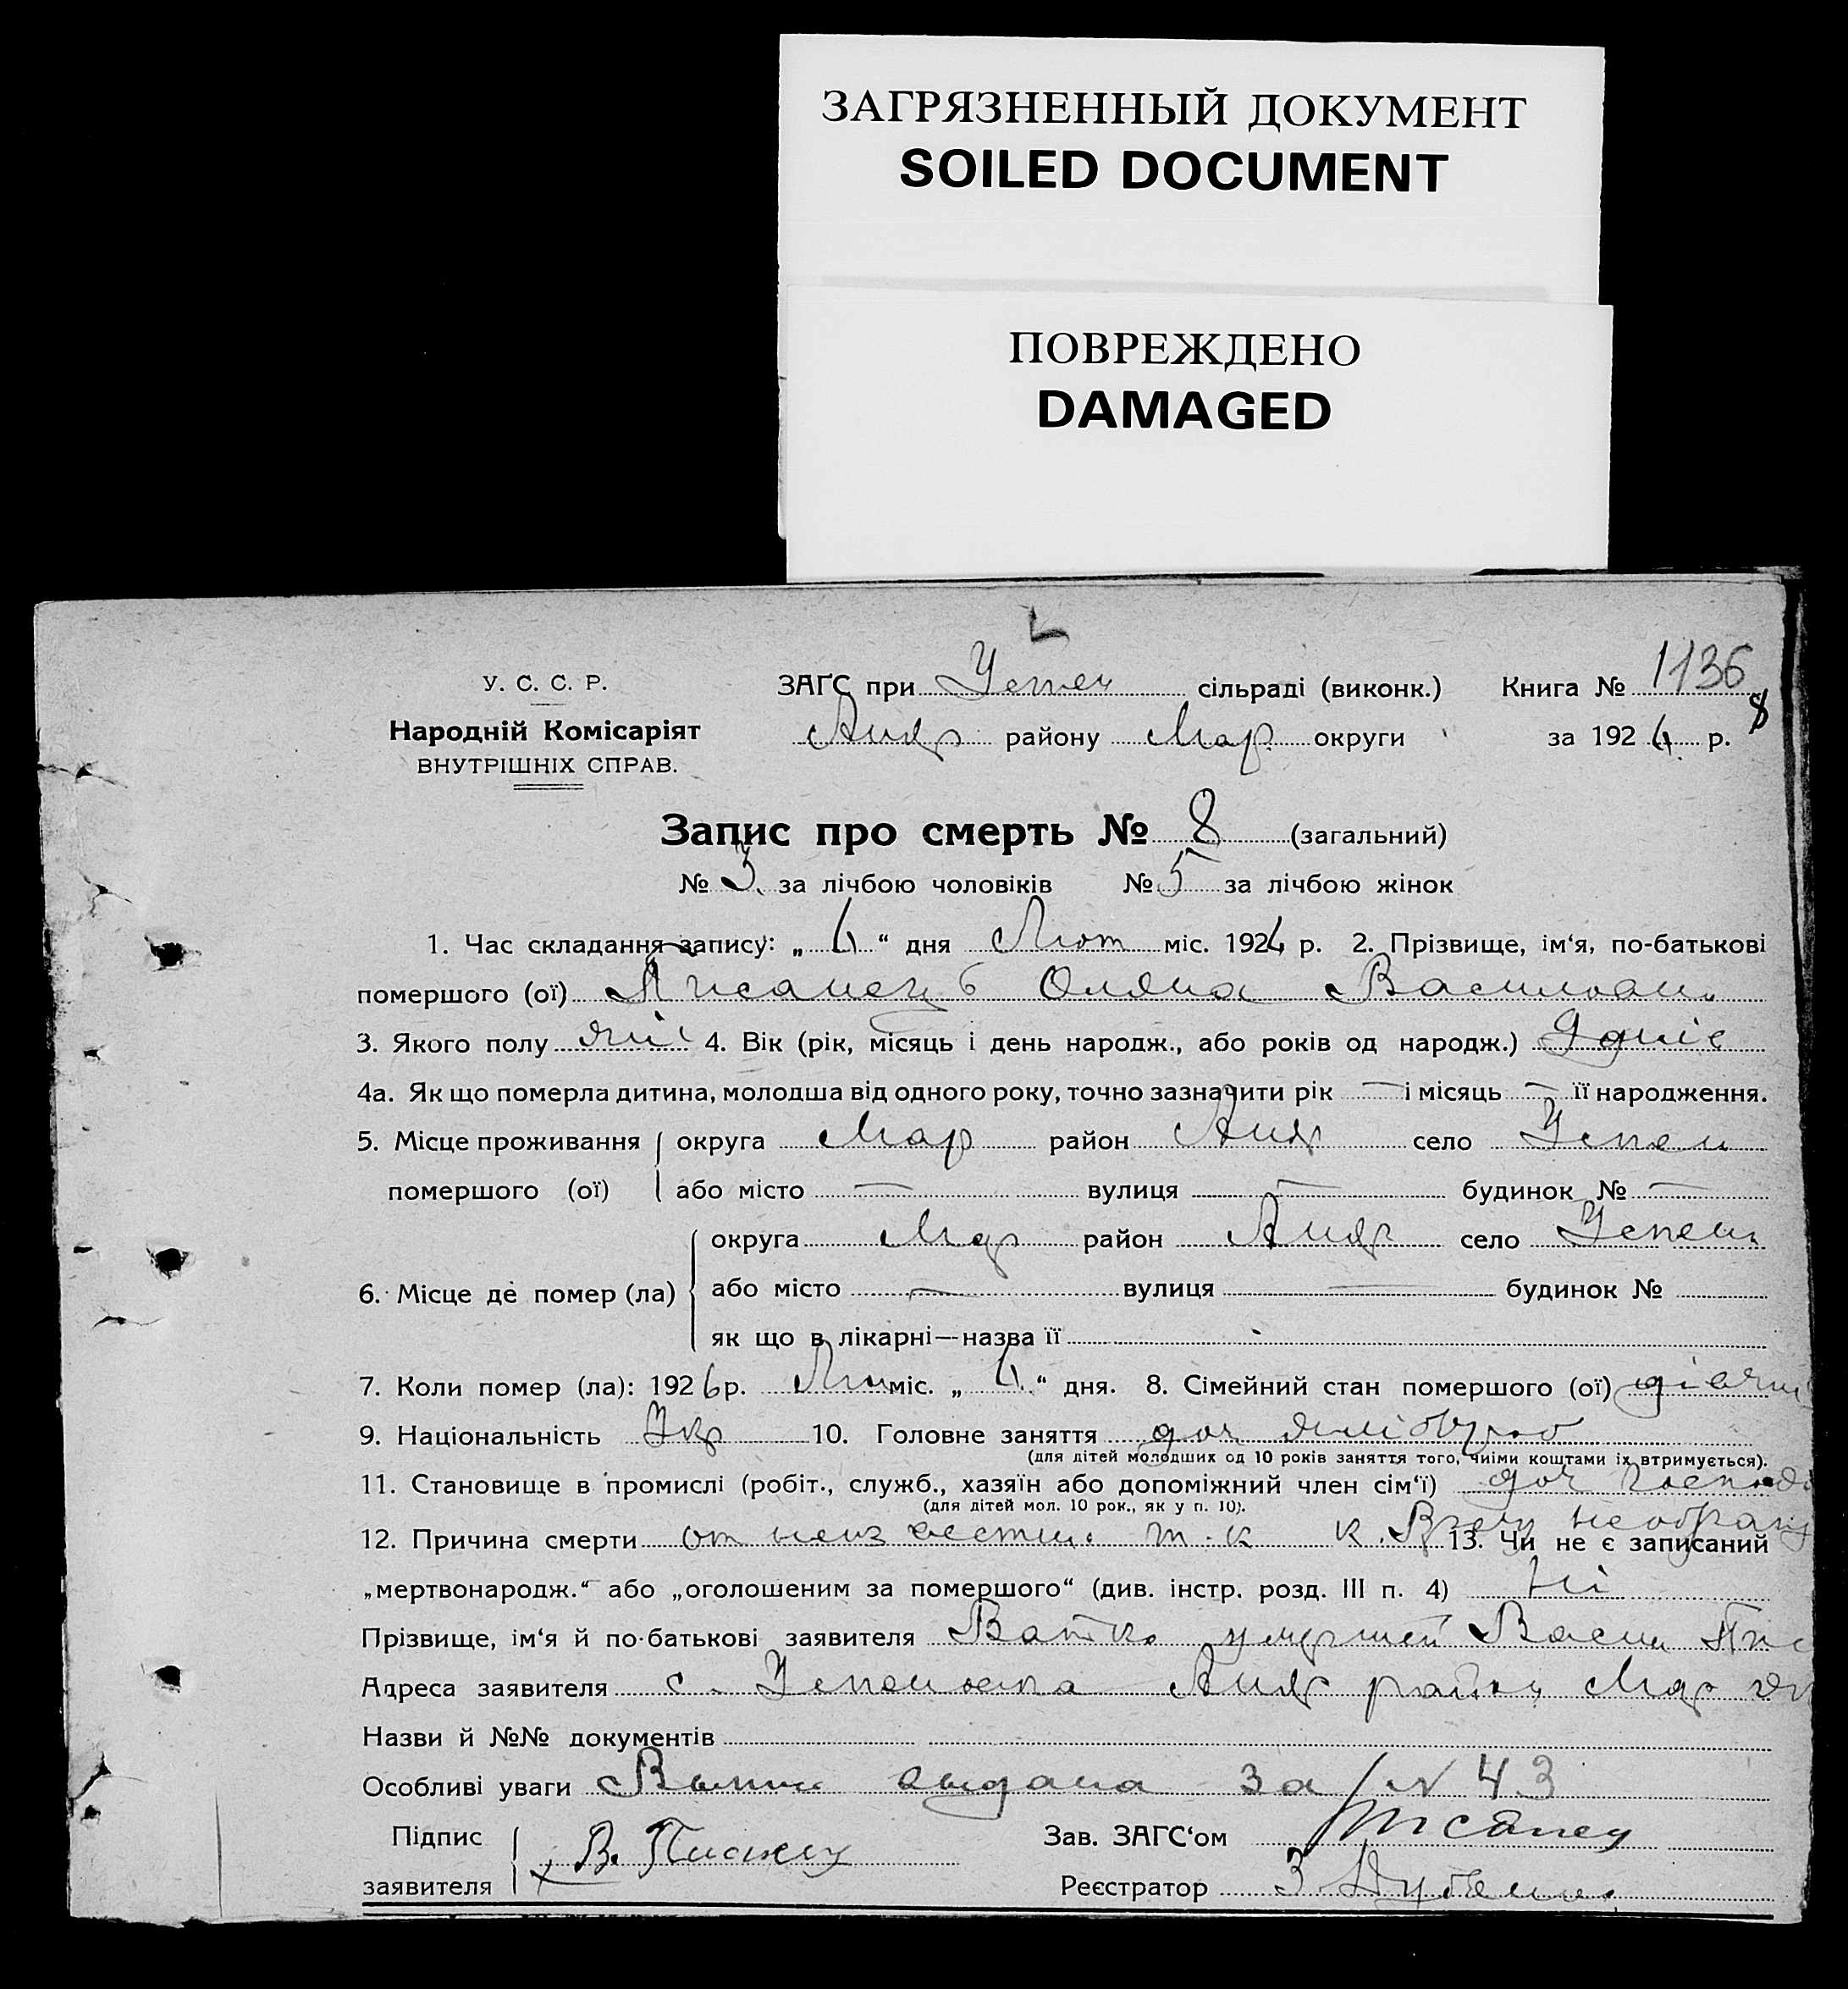 ЗАГРЯЗНЕННЫЙ ДОКУМЕНТ
SOILED DOCUMENT
ПОВРЕЖДЕНО
DAMAGED
У. С. С. Р.
Народній Комісаріят
ВНУТРІШНІХ СПРАВ.
ЗАГС при Успен сільраді (виконк.) Книга № 1136
Андр району Мар округи за 1926 р. 8
Запис про смерть № 8 (загальний)
№ 3 за лічбою чоловіків № 5 за лічбою жінок
1. Час складання запису: „ 6 “ дня Лют міс. 1926 р. 2. Прізвище, ім‘я, по-батькові
помершого (ої) Писанець Оляна Василован.
3. Якого полу жін 4. Вік (рік, місяць і день народж., або років од народж.) 9 дніє
4а. Як що померла дитина, молодша від одного року, точно зазначити рік — і місяць — її народження.
5. Місце проживання округа Мар район Андр село Успен
помершого (ої) або місто — вулиця — будинок № —
округа Мар район Андр село Успен
6. Місце де помер (ла) або місто — вулиця — будинок №
як що в лікарні—назва її
7. Коли помер (ла): 1926 р. Лют міс. „ 6 “ дня. 8. Сімейний стан помершого (ої)
9. Національність Укр 10. Головне заняття доч хлібороб
(для дітей молодших од 10 років заняття того, чиїми коштами їх втримується).
11. Становище в промислі (робіт., служб., хазяїн або допоміжний член сім‘ї) доч господ
(для дітей мол. 10 рок., як у п. 10).
12. Причина смерти от неизвестн. т. к к. Врачу не обращ 13. Чи не є записаний
„мертвонародж.“ або „оголошеним за помершого“ (див. інстр. розд. III п. 4) Ні
Прізвище, ім‘я й по-батькові заявителяВатко умершей Васил Пис
Адреса заявителя с. Успеновка Андр району Мар
Назви й №№ документів
Особливі уваги Выпис выдана за № 43
Підпис В. Писанец Зав. ЗАГС‘ом Писанец
заявителя Реєстратор З.